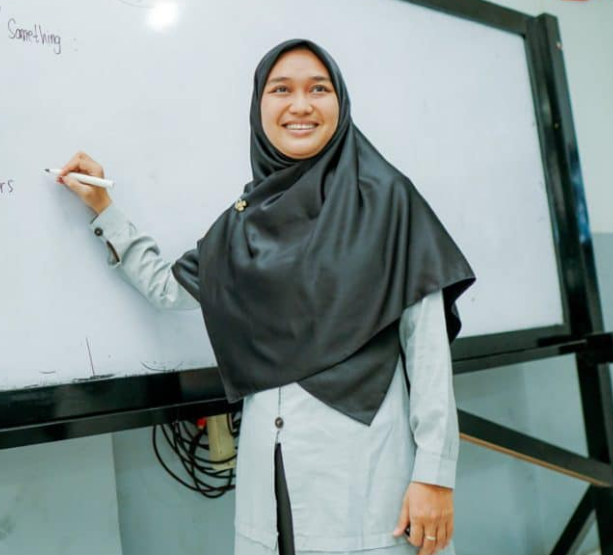 Something :
rs